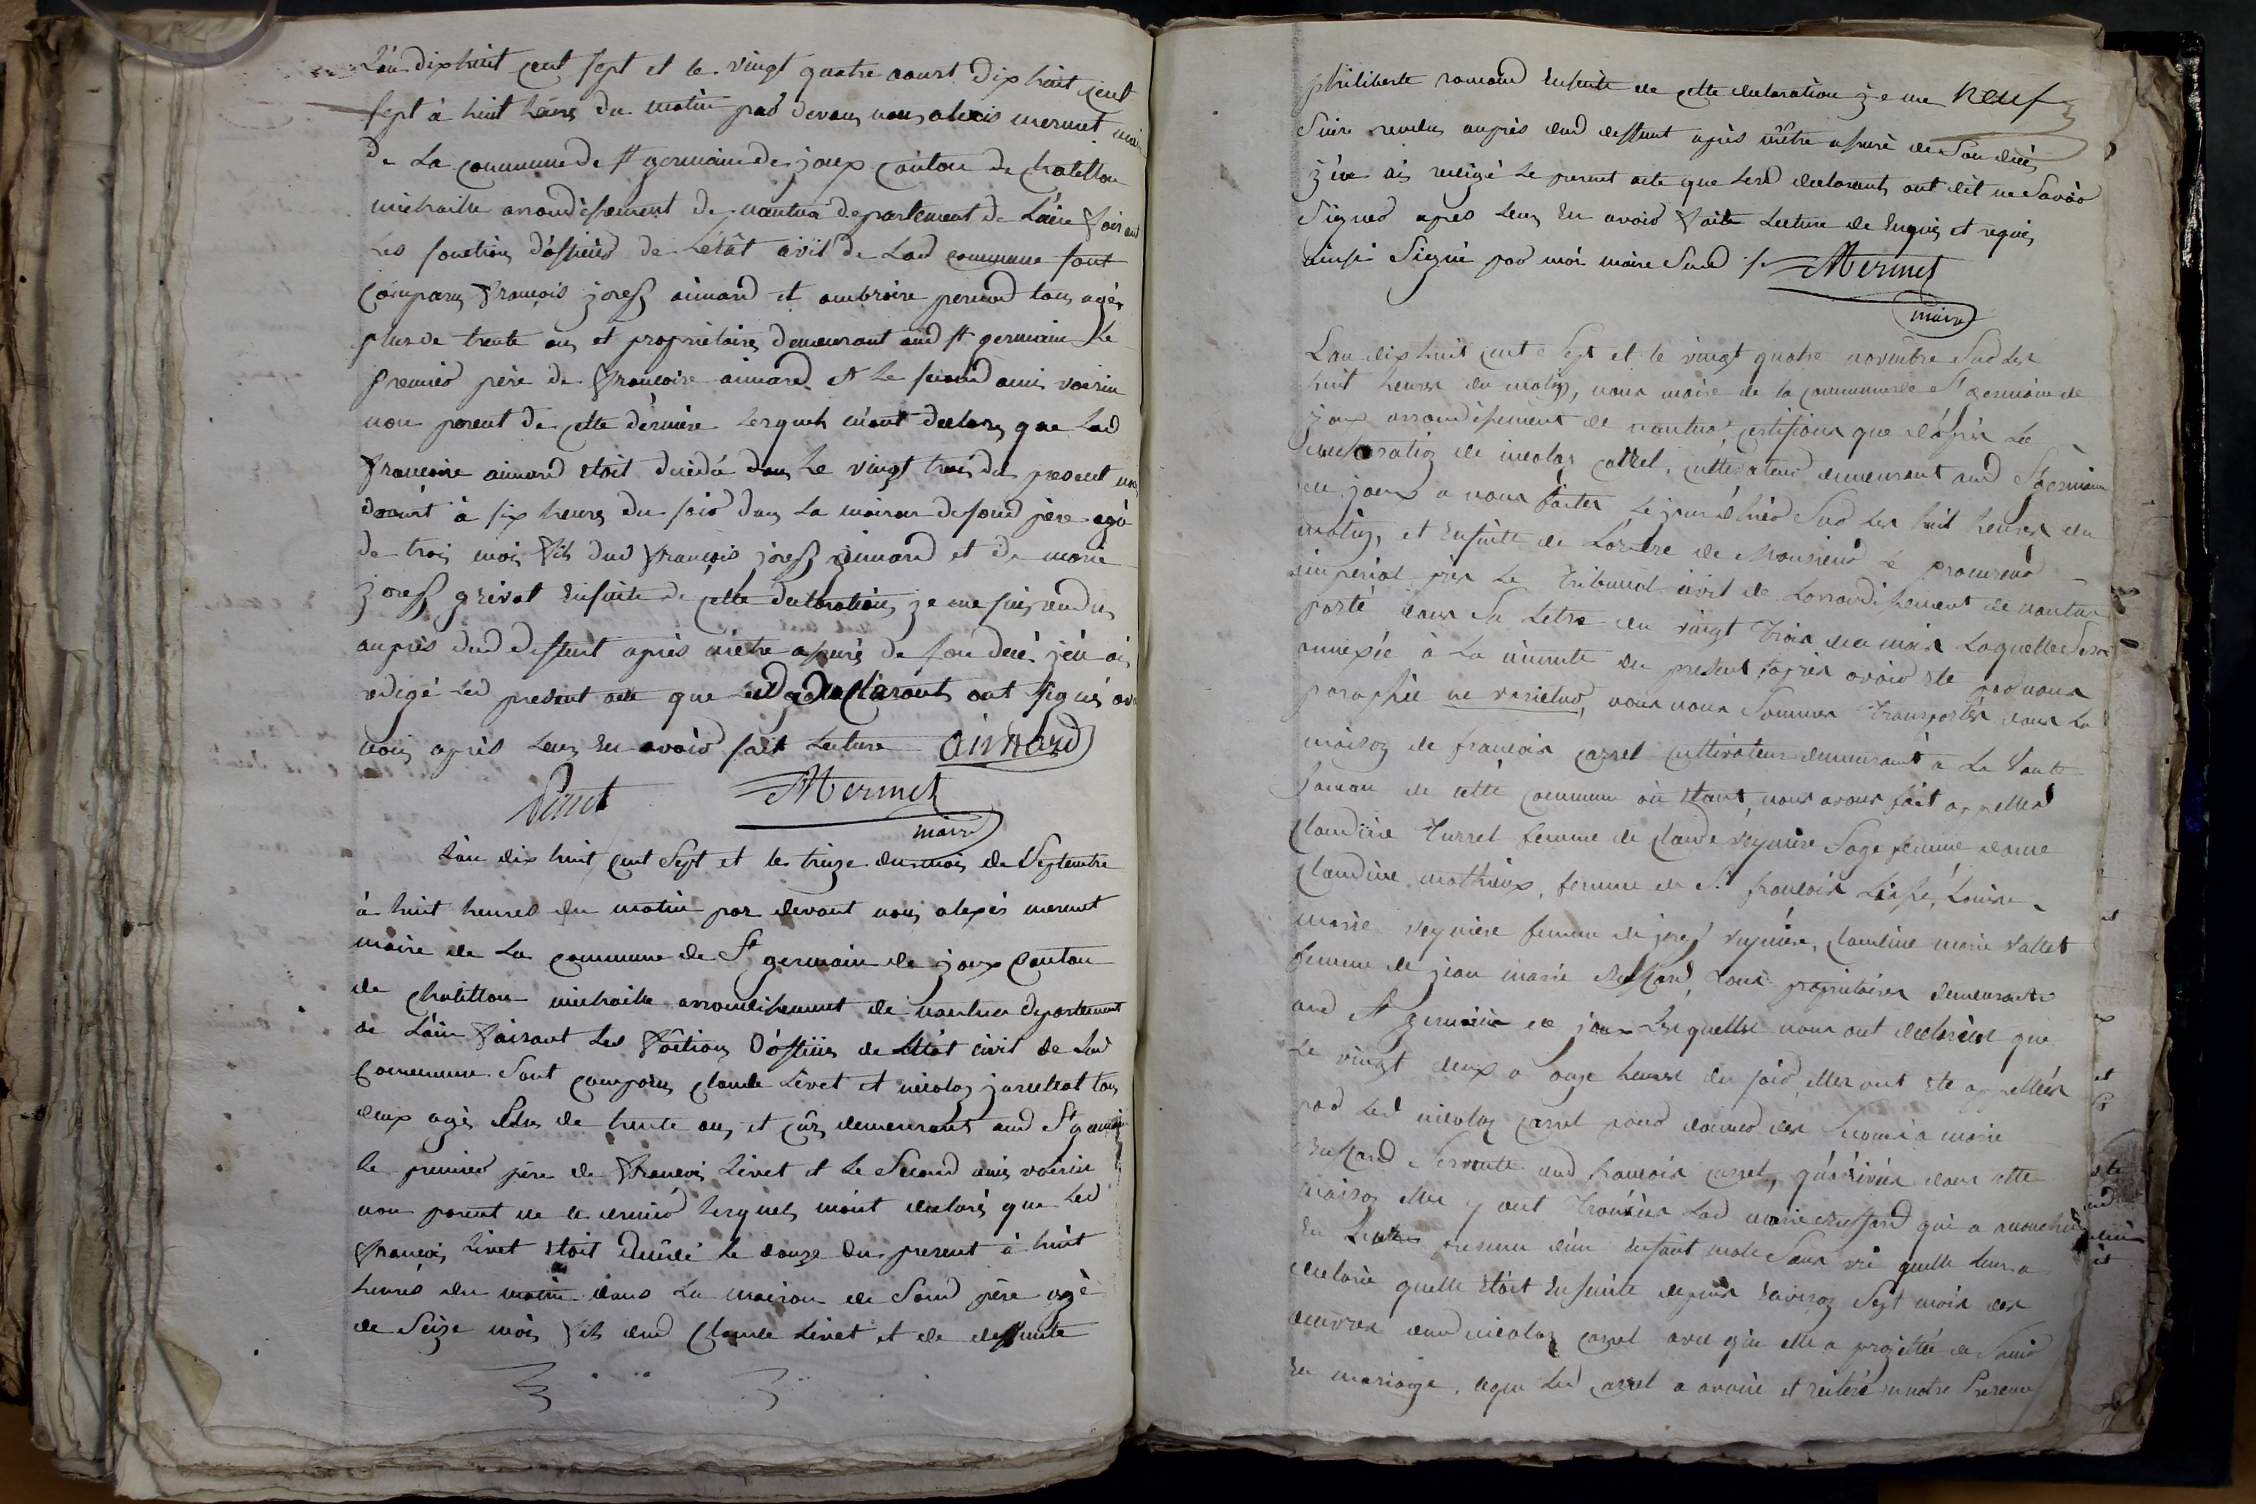 L'an dix huit cent sept et le vingt quatre aoust dix huit cent
sept à huit heures du matin par devant nous alexis mermet
de La commune de st germain de joux canton de chatillon
michaille arrondissement de nantua departement de L'ain faisant
Les fonctions d'officier de L'etat civil de Lad commune sont
comparus françois josef aimard et ambroise perrud tous agés
plus de trente ans et propriétaires demeurant aud st germain Le
premier père de françoise aimard et Le second ami voisin
non parent de cette dernière Lesquels m'ont declarés que Lad
françoise aimard etoit decedée dans Le vingt trois du present
aoust à six heures du soir dans La maison de soud père agée
de trois mois fils dud françois josef aimard et de marie
josef grivat ensuite de cette declaration je me suis rendus
auprès dud deffunt après m'etre assuré de son decé j'en ai
redigé Led present acte que Lesd declarants ont signés
nous après Leur en avoir fait Lecture aimard
Mermet
maire
L'an dix huit cent sept et le treize du mois de Septembre
à huit heures du matin par devant nous alexis mermet
maire de La commune de St germain de joux canton
de chatillon michaille arrondissement de nantua departement
de L'ain faisant Les fonctions d'officier de L'état civil de Lad
commune Sont comparus claude Livet et nicolas tous
deux agés plus de trente ans et demeurants aud St germain
Le premier père de françois Livet et Le Second ami voisin
non parent de ce dernier Lesquels m'ont declarés que Led
françois Livet etoit decedé Le douze du present à huit
heures du matin dans La maison de Soud père agé
de Seize mois fils dud claude Livet et de deffunte
philiberte romand ensuite de cette declaration je me neuf
Suis rendus auprès dud deffunt après m'être assuré de Son décé
j'en ai redigé Le present acte que Lesd declarants ont dit ne Savoir
Signer apres Leur en avoir faite Lecture de enquis et requis
ainsi Signé par moi maire Sud Mermet
maire
L'an dix huit cent Sept et le vingt quatre novembre Sur Les
huit heures du matin, nous maire de la commune de St germain de
joux arrondissement de nantua, certifions que d'après La
declaration de nicolas carrel, cultivateur demeurant aud St germain
de joux a nous faites Le jour d'hier Sur Les huit heures du
matin, et ensuite de L'ordre de Monsieur Le procureur
imperial près Le tribunal civil de L'arrondissement de nantua
porté dans Sa Lettre du vingt trois du mois Laquelle Sera
annexée à La minute du present après avoir ete par nous
paraphée ne varietur, nous nous Sommes transportés dans La
maison de françois carrel cultivateur demeurant à La
hameau de cette commune où etant, nous avons fait appeller
Claudine turrel femme de claude reynière Sage femme dame
Claudine mathieux, femme de Sr françois, Louise
marie reynière femme de josef reynière, claudine marie vallet
femme de jean marie, tous propriétaires demeurants
aud St germain de joux Lesquelles nous ont declarées que
Le vingt deux a onze heures du soir, elles ont ete appellées
par Led nicolas carrel pour donner des Secours a marie
Servente aud françois carrel, qu'arrivées dans cette
maison elles y ont trouvées Lad marie qui a accouchée
en Leur presence d'un enfant male Sans vie quelle Leur a
declarée quelle etoit enceinte depuis environ Sept mois des
oeuvres dud nicolas carrel avec qui elle a projettée de S'unir
en mariage, ce que Led carrel a avoué et réitéré en notre Presence